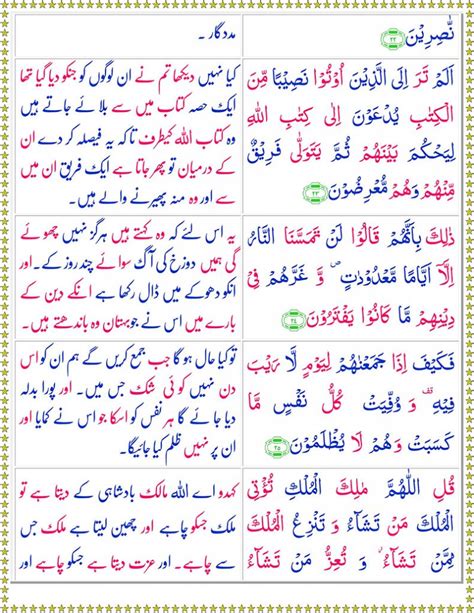 نّٰصِرِیْنَ ﴿۲۲﴾
مددگار ۔
اَلَمْ تَرَ اِلَی الَّذِیْنَ اُوْتُوْا نَصِیْبًا مِّنَ
الْکِتٰبِ یُدْعَوْنَ اِلٰی کِتٰبِ اللّٰهِ
لِیَحْکُمَ بَیْنَهُمْ ثُمَّ یَتَوَلّٰی فَرِیْقٌ
مِّنْهُمْ وَهُمْ مُّعْرِضُوْنَ ﴿۲۳﴾
کیا نہیں دیکھا تم نے ان لوگوں کو جنکو دیا گیا تھا
ایک حصہ کتاب میں سے بلائے جاتے ہیں
وہ کتاب اللہ کیطرف تا کہ یہ فیصلہ کر دے ان
کے درمیان تو پھر جاتا ہے ایک فریق ان میں
سے اور وہ منہ پھیرنے والے ہیں۔
ذٰلِكَ بِاَنَّهُمْ قَالُوْا لَنْ تَمَسَّنَا النَّارُ
اِلَّاۤ اَیَّامًا مَّعْدُوْدٰتٍ ۪ وَّ غَرَّهُمْ فِیْ
دِیْنِهِمْ مَّا کَانُوْا یَفْتَرُوْنَ ﴿۲۴﴾
یہ اس لئے کہ وہ کہتے ہیں ہرگز نہیں چھوئے
گی ہمیں دوزخ کی آگ سوائے چند روز کے۔ اور
انکو دھوکے میں ڈال رکھا ہے انکے دین کے
بارے میں اس نے جو بہتان وہ باندھتے ہیں۔
فَکَیْفَ اِذَا جَمَعْنٰهُمْ لِیَوْمٍ لَّا رَیْبَ
فِیْهِ ۟ وَ وُفِّیَتْ کُلُّ نَفْسٍ مَّا
کَسَبَتْ وَهُمْ لَا یُظْلَمُوْنَ ﴿۲۵﴾
تو کیا حال ہو گا جب جمع کریں گے ہم ان کو اس
دن نہیں کوئی شک جس میں۔ اور پورا بدلہ
دیا جائے گا ہر نفس کو اسکا جو اس نے کمایا اور
ان پر نہیں ظلم کیا جائیگا۔
قُلِ اللّٰهُمَّ مٰلِكَ الْمُلْكِ تُؤْتِی
الْمُلْكَ مَنْ تَشَآءُ وَ تَنْزِعُ الْمُلْكَ
مِمَّنْ تَشَآءُ ۫ وَ تُعِزُّ مَنْ تَشَآءُ
کہدو اے اللہ مالک بادشاہی کے دیتا ہے تو
ملک جسکو چاہے اور چھین لیتا ہے ملک جس
سے چاہے۔ اور عزت دیتا ہے جسکو چاہے اور